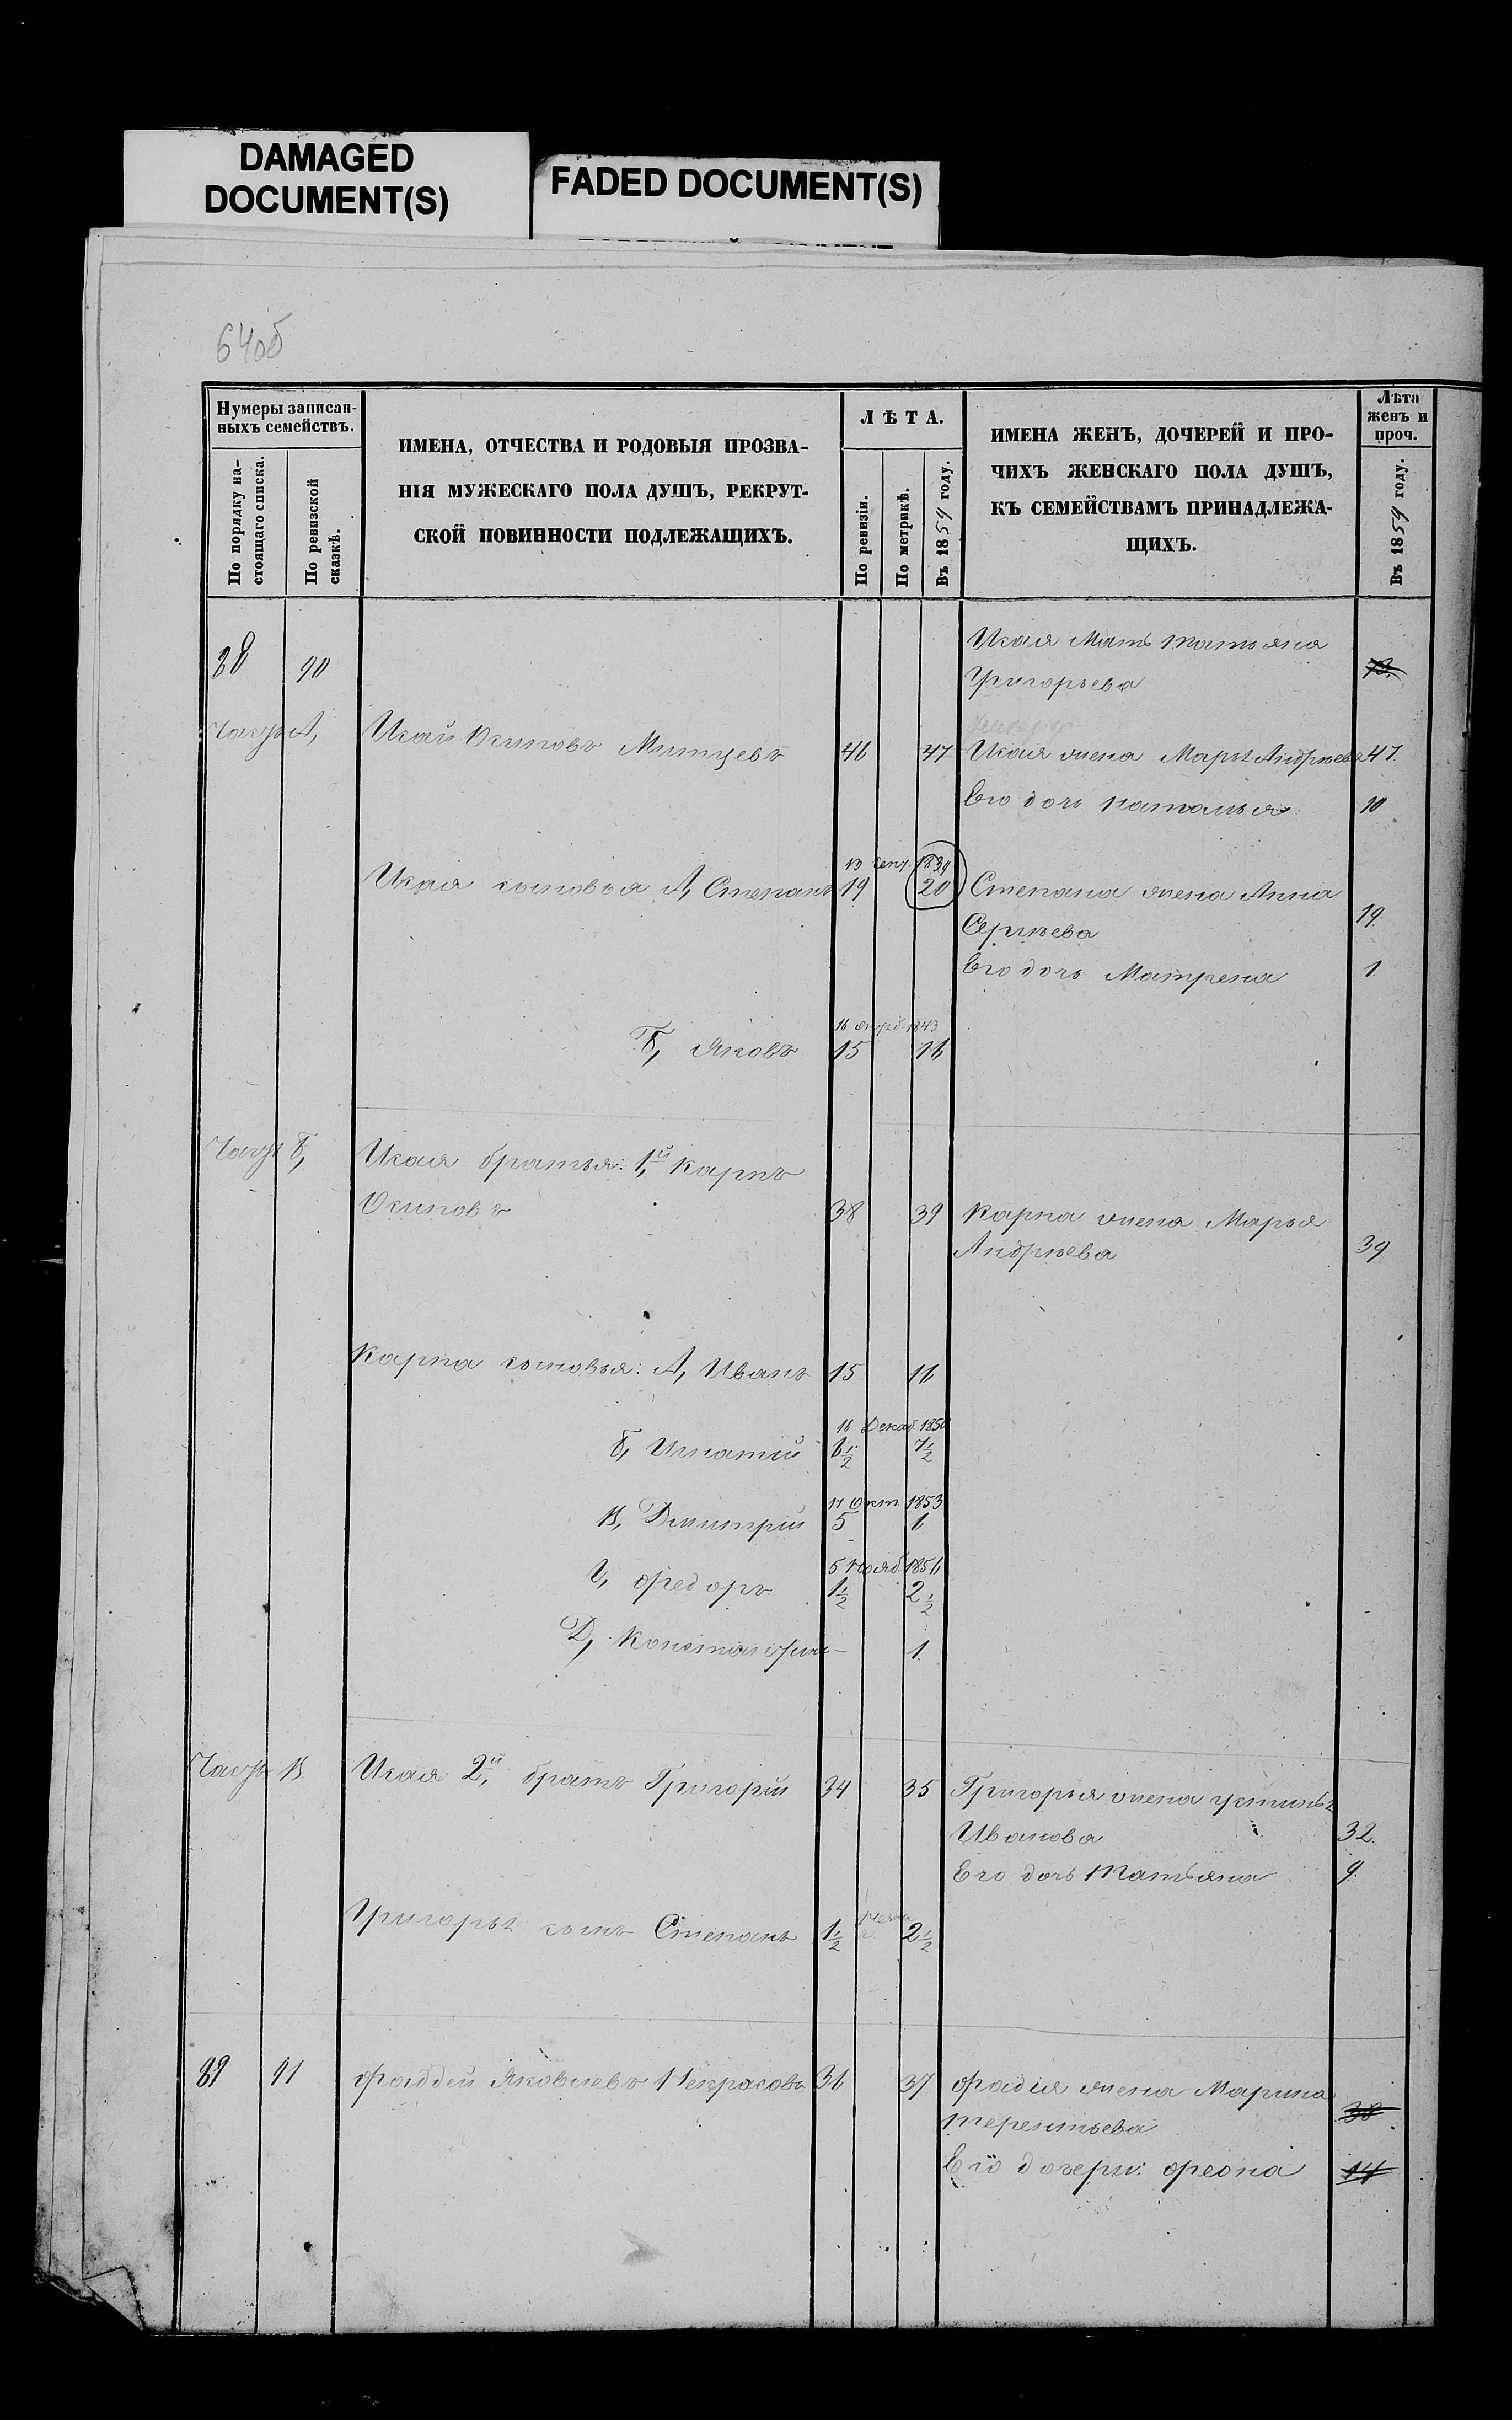 DAMAGED
DOCUMENT(S)
FADED DOCUMENT(S)
64об
Нумеры записан-
ныхъ семействъ.
По порядку на-
стоящаго списка.
По ревизской
сказкѣ.
ИМЕНА, ОТЧЕСТВА И РОДОВЫЯ ПРОЗВА-
НІЯ МУЖЕСКАГО ПОЛА ДУШЪ, РЕКРУТ-
СКОЙ ПОВИННОСТИ ПОДЛЕЖАЩИХЪ.
ЛѢТА.
По ревизіи.
По метрикѣ.
Въ 1859 году.
ИМЕНА ЖЕНЪ, ДОЧЕРЕЙ И ПРО-
ЧИХЪ ЖЕНСКАГО ПОЛА ДУШЪ,
КЪ СЕМЕЙСТВАМЪ ПРИНАДЛЕЖА-
ЩИХЪ.
Лѣта
женъ и
проч.
Въ 1859 году.
90
Исая Мать Татьяна
Григорьева
А, Исай Осиповъ 46 47 Исая жена Марья Андреева 47.
Его дочь Наталья 10
13 Сент. 1839
Исая сыновья А, Степанъ 19 20 Степана жена Анна
Сергѣева 19.
Его дочь Матрена 1
1843
Б, Яковъ 15 16
Б, Исая братья: 1й Карпъ
Осиповъ 38 39 Карпа жена Марья
Андрѣева 39
Карпа сыновья: А, Иванъ 15 16
16 Декаб.
Б, Игнатий 6 1/2 7 1/2
17 Окт. 1853
В, Дмитрий 5 6
5 Нояб. 1856
Г, Федоръ 1 1/2 2 1/2
Д, Константинъ — 1
В Исая 2й, братъ Григорий 34 35 Григорья жена Устинья
Иванова 32.
Его дочь Татьяна 9.
Григорья сынъ Степанъ 1 1/2 2 1/2
91 Фаддей Яковлевъ Некрасовъ 36 37 Фадея жена Марина
Терентьева 38
Его дочери: Феона 14